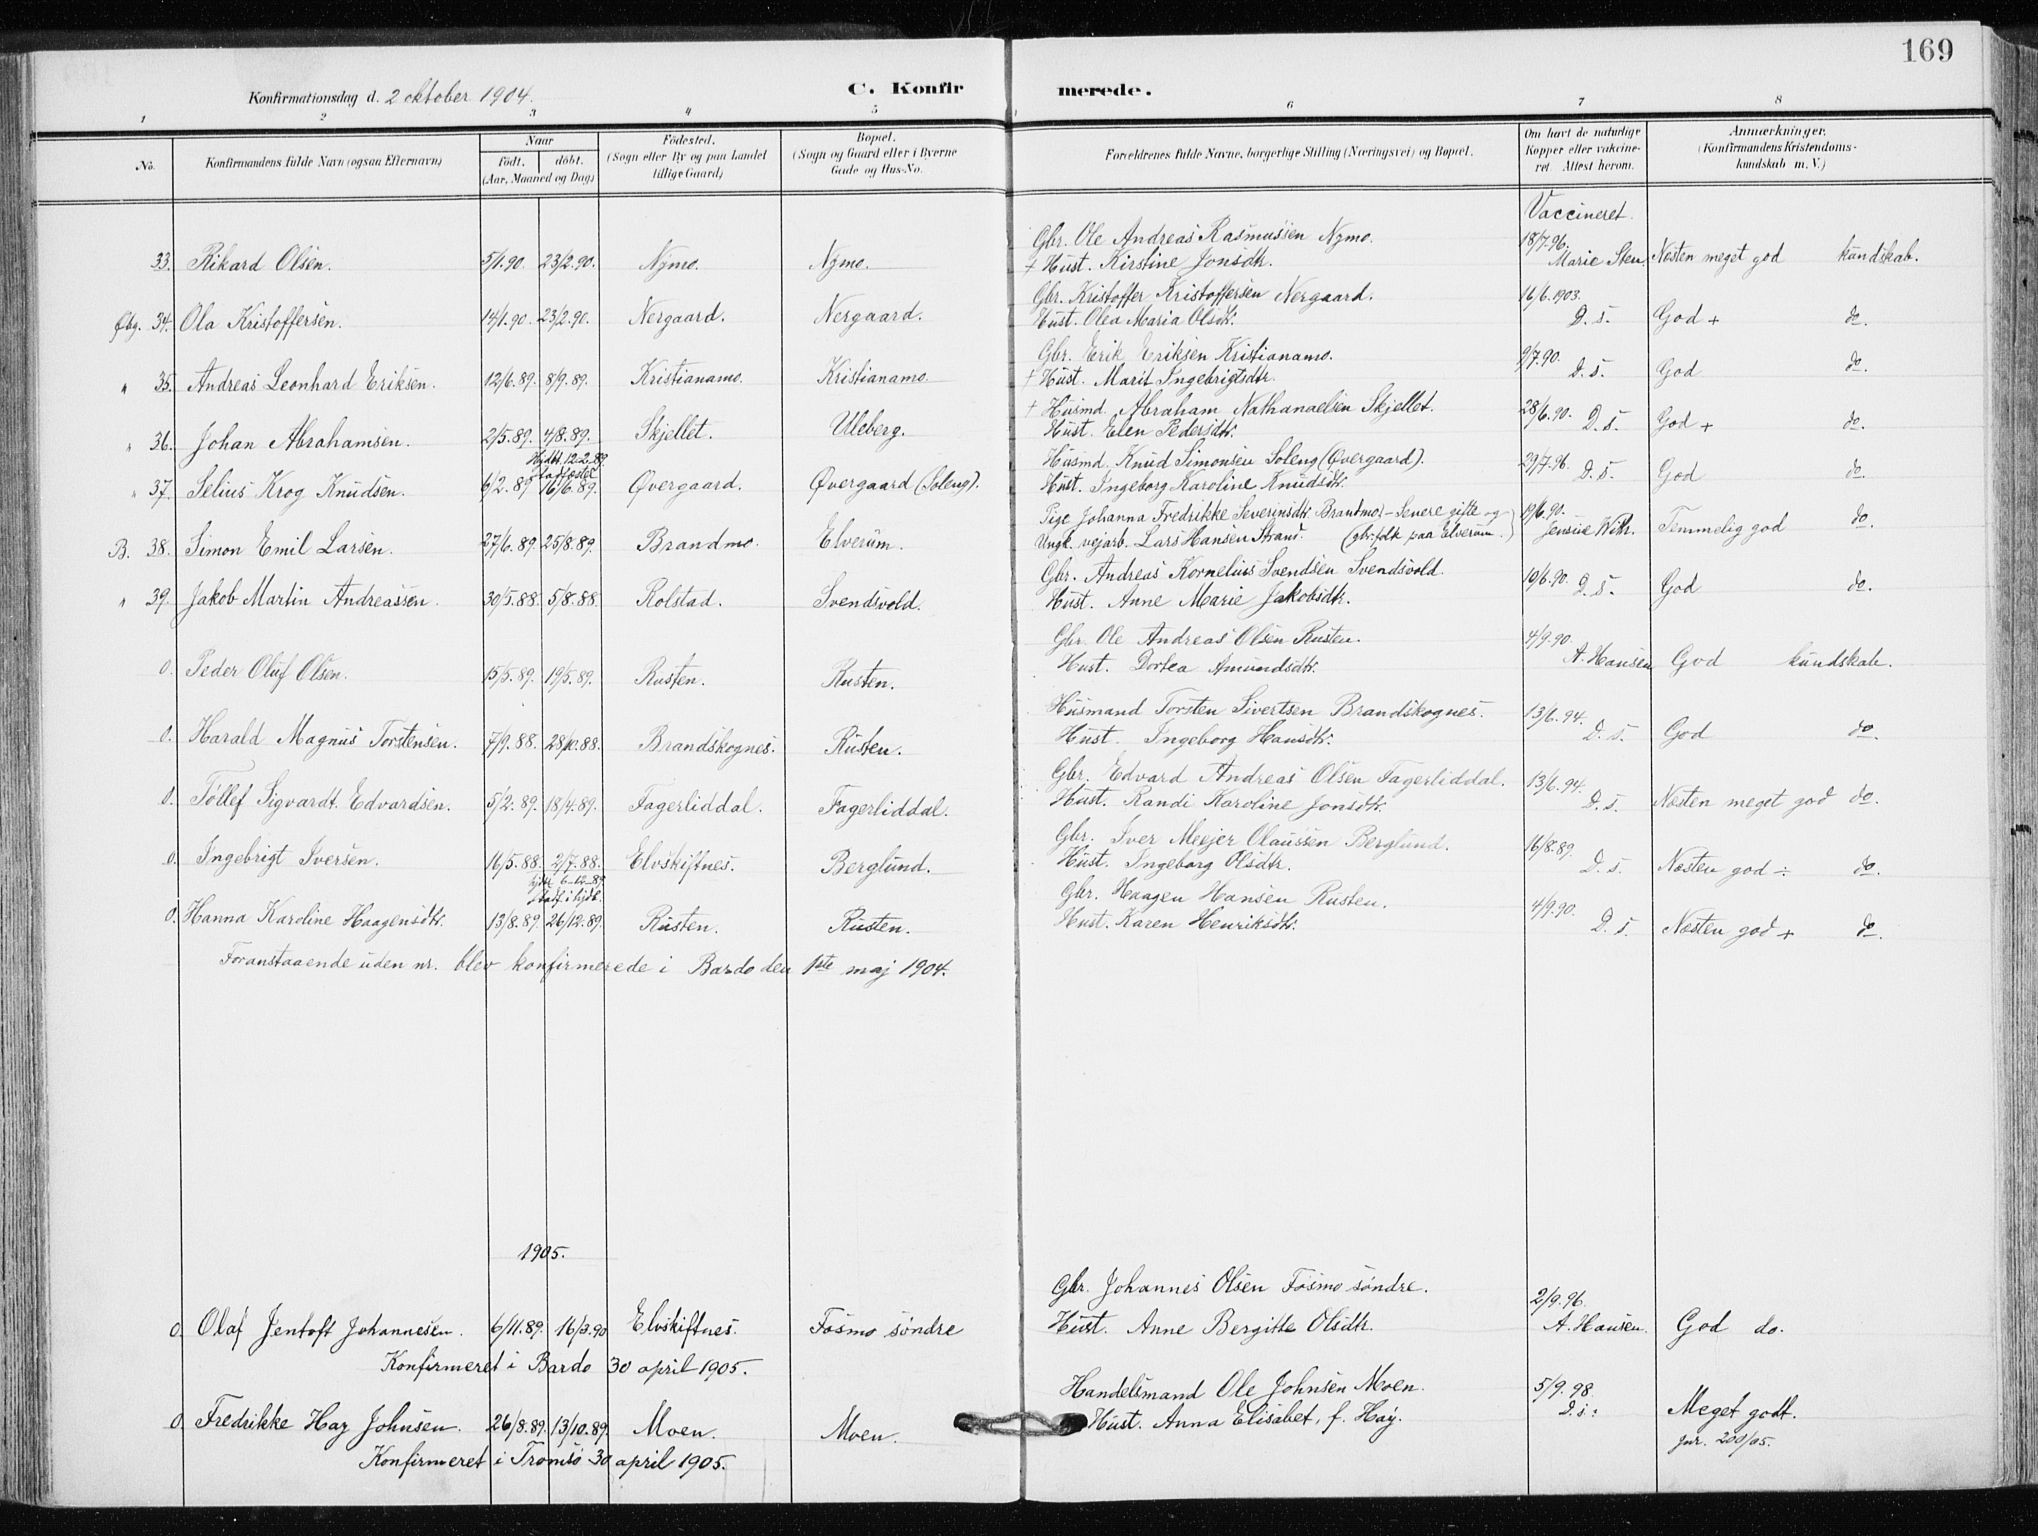 169
Konfirmationsdag d. 2 oktober 1904.
C. Konfirmerede.
1 2 3 4 5 6 7 8
No.
Konfirmandens fulde Navn (ogsaa Efternavn)
Naar
födt. döbt.
(Aar, Maaned og Dag)
Födested.
(Sogn eller By og paa Landet
tillige Gaard)
Bopæl.
(Sogn og Gaard eller i Byerne
Gade og Hus-No.
Forældrenes fulde Navne, borgerlige Stilling (Næringsvei) og Bopæl.
Om havt de naturlige
Kopper eller vakcine-
ret. Attest herom.
Anmærkninger.
(Konfirmandens Kristendoms-
kundskab m. V.)
Vaccineret.
33. Rikard Olsen. 5/1.90. 23/2.90. Nymo. Nymo. Gbr. Ole Andreas Rasmussen Nymo. 18/7.96.
† Hust. Kirstine Jonsdtr. Marie Sten. Næsten meget god kundskab.
Øbg. 34. Ola Kristoffersen. 14/1.90. 23/2.90. Nergaard. Nergaard. Gbr. Kristoffer Kristoffersen Nergaard. 16/6.1903.
Hust. Olea Maria Olsdtr. D. s. God + do.
" 35. Andreas Leonhard Eriksen. 12/6.89. 8/9.89. Kristianamo. Kristianamo. Gbr. Erik Eriksen Kristianamo. 9/7.90.
† Hust. Marit Ingebrigtsdtr. D. s. God do.
" 36. Johan Abrahamsen. 2/5.89. 4/8.89. Skjellet. Uleberg. † Husmd. Abraham Nathanaelsen Skjellet. 28/6.90.
Hust. Elen Pedersdtr. D. s. God + do.
Hjdbt. 12-2-89.
stadfæstet
" 37. Selius Krog Knudsen. 6/2.89 16/6.89. Øvergaard. Øvergaard (Soleng). Husmd. Knud Simonsen Soleng (Øvergaard). 29/7.96.
Hust. Ingeborg Karoline Knudsdtr. D. s. God do.
B. 38. Simon Emil Larsen. 27/6.89. 25/8.89. Brandmo. Elverum. Pige Johanna Fredrikke Severinsdtr. Brandmo. - Senere gifte og 19/6.90.
Ungk. vejarb. Lars Hansen Strand. (gbr.folk paa Elverum.) Jensine With. Temmelig god do.
" 39. Jakob Martin Andreassen. 30/5.88. 5/8.88. Rolstad. Svendsvold. Gbr. Andreas Kornelius Svendsen Svendsvold. 19/6.90.
Hust. Anne Marie Jakobsdtr. D. s. God do.
0. Peder Oluf Olsen. 15/5.89. 19/5.89. Rusten. Rusten. Gbr. Ole Andreas Olsen Rusten. 4/9.90.
Hust. Dortea Amundsdtr. A. Hansen God kundskab.
0. Harald Magnus Torstensen. 7/9.88. 28/10.88. Brandskognes. Rusten. Husmand Torsten Sivertsen Brandskognes. 13/6.94.
Hust. Ingeborg Hansdtr. D. s. God do.
0. Tollef Sigvardt Edvardsen. 5/2.89. 18/4.89. Fagerliddal. Fagerliddal. Gbr. Edvard Andreas Olsen Fagerliddal. 13/6.94.
Hust. Randi Karoline Jonsdtr. D. s. Næsten meget god do.
0. Ingebrigt Iversen. 16/5.88. 2/7.88. Elvskiftnes. Berglund. Gbr. Iver Mejer Olaussen Berglund. 16/8.89.
Hust. Ingeborg Olsdtr. D. s. Næsten god ÷ do.
6-12-89.
stadf. i kjdt.
0. Hanna Karoline Haagensdtr. 13/8.89. 26/12.89. Rusten. Rusten. Gbr. Haagen Hansen Rusten. 4/9.90.
Hust. Karen Henriksdtr. D. s. Næsten god + do.
Foranstaaende uden nr. blev konfirmerede i Bardo den 1ste maj 1904.
1905.
0. Olaf Jentoft Johannesen. 6/11.89. 16/3.90 Elvskiftnes. Fosmo söndre Gbr. Johannes Olsen Fosmo söndre. 2/9.96.
Hust. Anne Bergitte Olsdtr. A. Hansen. God do.
Konfirmeret i Bardo 30 april 1905.
0. Fredrikke Hay Johnsen. 26/8.89. 13/10.89. Moen. Moen. Handelsmand Ole Johnsen Moen. 5/9.98.
Hust. Anna Elisabet, f. Hay. D. s. Meget godt.
Jnr. 200/05.
Konfirmeret i Tromsö 30 april 1905.